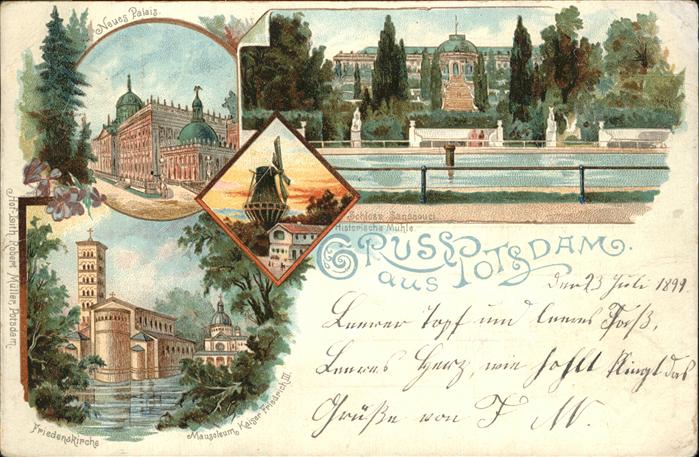 Neues Palais.
Schloss Sanssouci
Historische Mühle.
GRUSS
aus POTSDAM.
Friedenskirche
Mausoleum Kaiser Friedrich III.
Hof-Lith. Robert Müller, Potsdam.
Den 23 Juli 1899.
Leerer Topf und leeres Faß,
Leeres Herz, wie hohl klingt das
Grüße von F M.